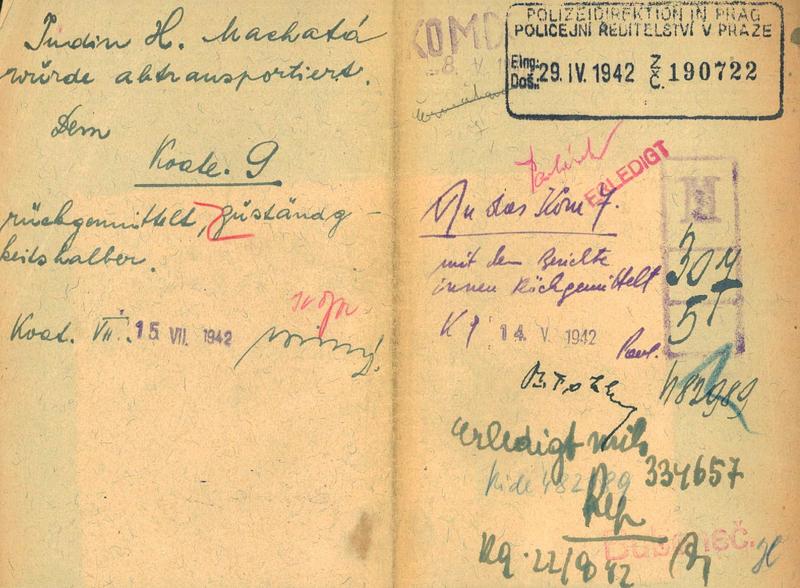 Jüdin H. Machatá
würde abtransportiert.
Dem
Koate. 9
rückgemittelt, zuständg-
keitshalber.
Koat. VII. 15 VII. 1942
KOMD
8. V.
POLIZEIDIREKTION IN PRAG
POLICEJNÍ ŘEDITELSTVÍ V PRAZE
Eing.:
Doš.: 29. IV. 1942 Z. Č. 190722
ERLEDIGT
An das Kom 7.
H
mit dem Berichte
innen Rückgemittelt
307
51
K 9 14. V. 1942
482989
Erledigt mit
334657
482989
Kg. 22/9 42